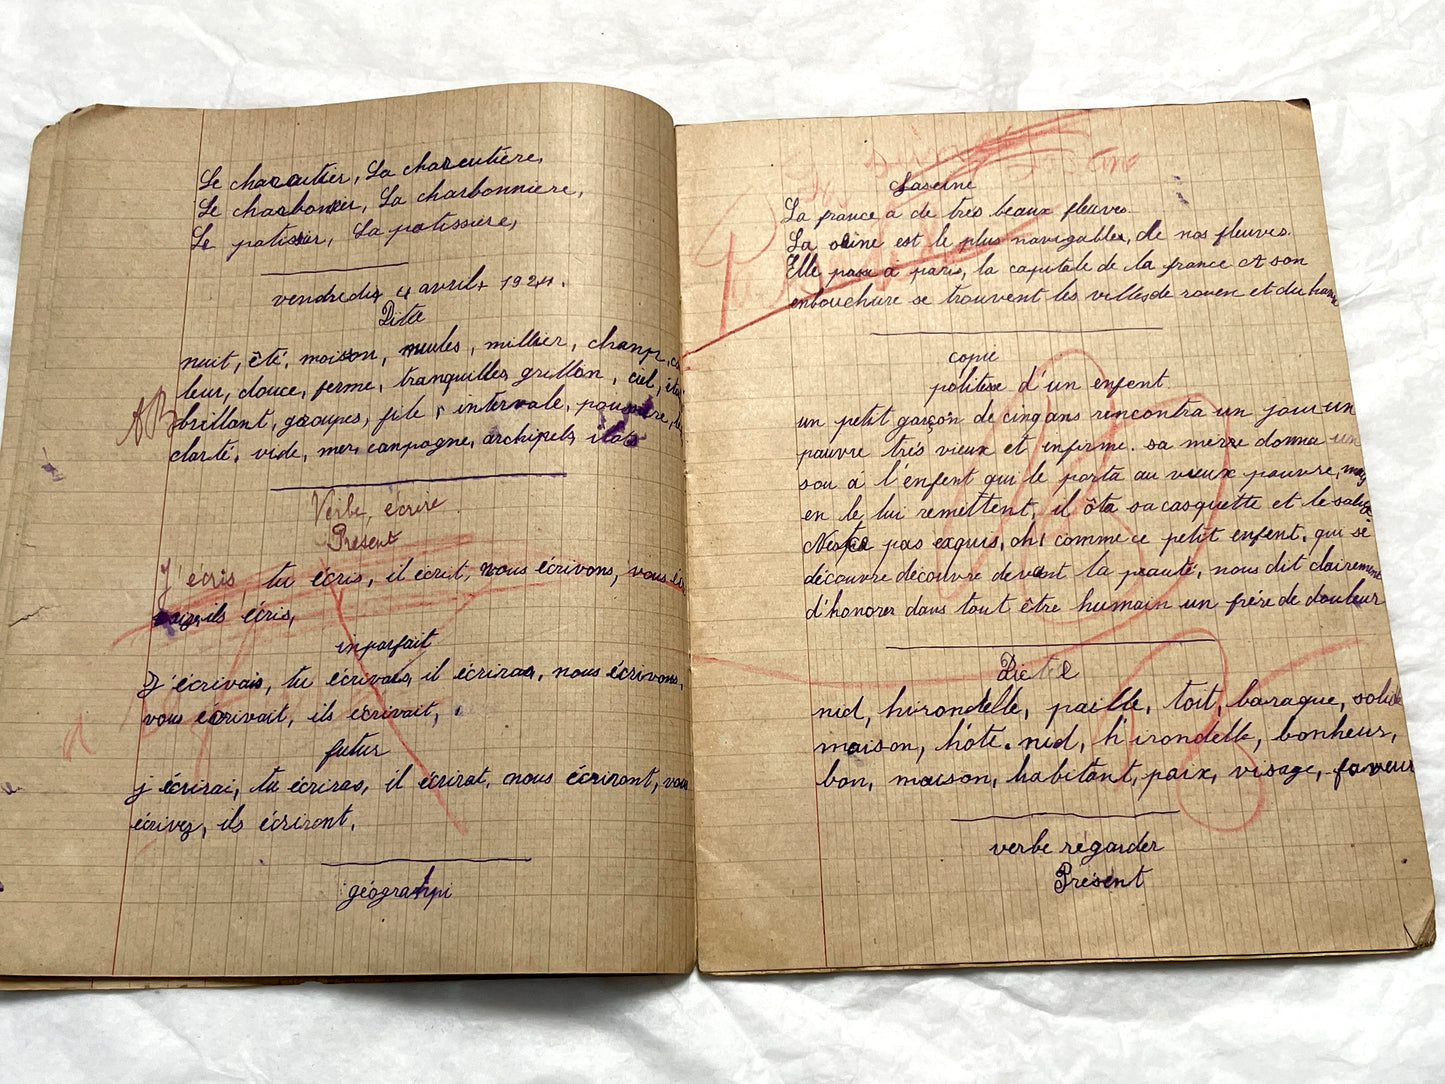 Le charcutier, La charcutière,
Le charbonier, La charbonnière,
Le patissier, La patissière,
vendredi 4 avril 1924.
Dictée
nuit, été, moisson, meules, millier, champ,
leur, douce, ferme, tranquilles grillon, ciel,
AB
brillant, groupes, file, intervale, poussière,
clarté, vide, mer, canpagne, archipel, ilots
Verbe, écrire
Présent
J'écris, tu écris, il écrit, nous écrivons, vous
ils écris,
inparfait
J'écrivais, tu écrivais, il écrivas, nous écrivons,
vous écrivait, ils écrivait,
futur
j écrirai, tu écriras, il écrirat, nous écriront, vous
écrivez, ils écriront.
géographi
Laseine
La france a de très beaux fleuves.
La seine est le plus navigables, de nos fleuves.
Elle passe à paris, la capitale de la france et son
enbouchure se trouvent les villes de rouen et du havre
copie
politesse d'un enfent
un petit garçon de cinq ans rencontra un jour un
pauvre très vieux et enfirme. sa merre donna un
sou à l'enfent qui le porta au vieux pauvre, mais
en le lui remettent, il ôta sa casquette et le salua
pas exquis, oh! comme ce petit enfent, qui se
découvre découvre devent la pauté, nous dit clairement
d'honorer dans tout être humain un frére de douleur
Dictée
nid, hirondelle, paille, toit, baraque, solide
maison, hôte. nid, h'irondelle, bonheur,
bon, maison, habitant, paix, visage, faveur
verbe régarder
Présent